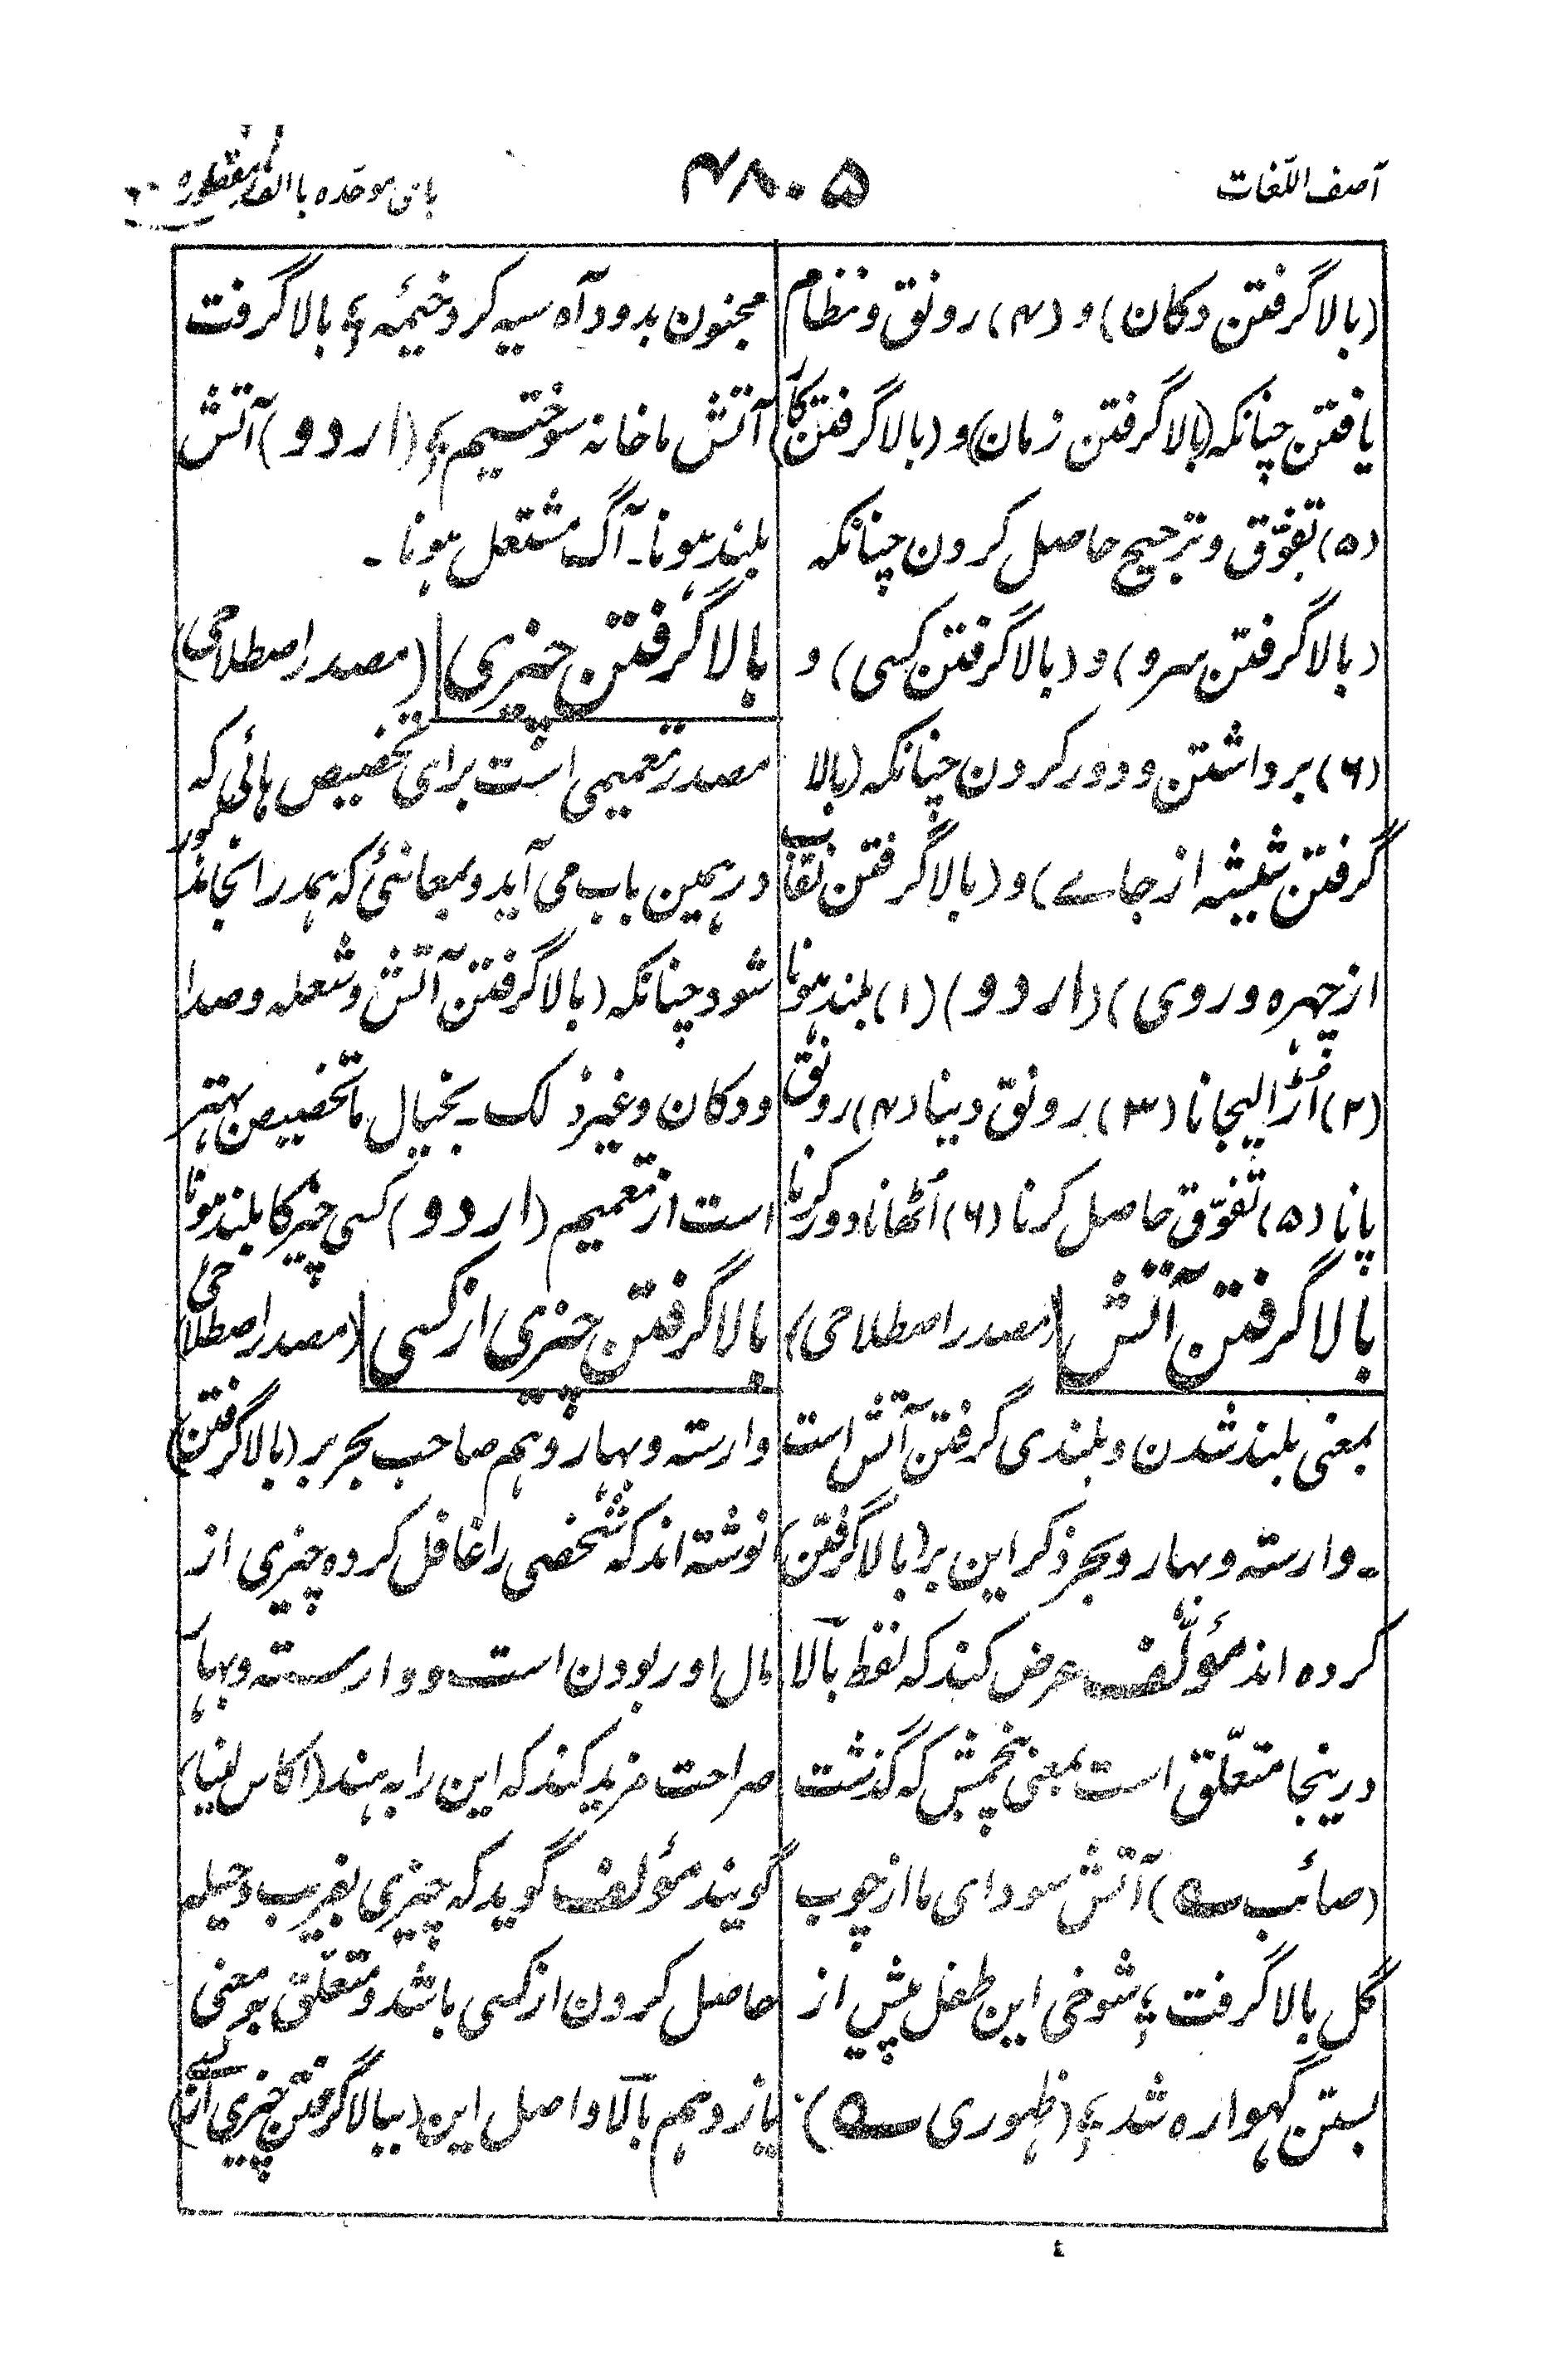 آصف اللّغات
۴۸۰۵
بای موحّده با الف مقصوره
(بالا گرفتن دکان) و (۴) رونق و نظام
یافتن چنانکه (بالا گرفتن زمان) و (بالا گرفتن کار)
(۵) تفوّق و ترجیح حاصل کردن چنانکه
(بالا گرفتن سرو) و (بالا گرفتن کسی) و
(۶) برداشتن و دور کردن چنانکه (بالا
گرفتن شیشه از جاے) و (بالا گرفتن نقاب
از چهره و روی) (اردو) (۱) بلند ہونا
(۲) اُڑا لیجانا (۳) رونق دینا (۴) رونق
پانا (۵) تفوّق حاصل کرنا (۶) اُٹھانا دور کرنا
بالا گرفتن آتش (مصدر اصطلاحی)
بمعنی بلند شدن و بلندی گرفتن آتش است
۔ وارسته و بهار و بحر ذکر این بر (بالا گرفتن)
کرده اند مؤلّف عرض کند که لفظ بالا
درینجا متعلّق است بمعنی پنجمش که گذشت
(صائب ے) آتش سودای ما از چوب
گل بالا گرفت ؛ شوخی این طفل پیش از
بستن گهواره شد ؛ (ظهوری ے)
مجنون بدود آه سیه کرد خیمه ؛ بالا گرفت
آتش ما خانه سوختیم ؛ (اردو) آتش
بلند ہونا۔ آگ مشتعل ہونا ۔
بالا گرفتن چیزی (مصدر اصطلاحی)
مصدر تعمیمی است برای تخصیص هائی که
در همین باب می آید و بمعانئی که همدر انجا مذکور
شود چنانکه (بالا گرفتن آتش و شعله و صدا
و دکان و غیر ذلک ۔ بخیال ما تخصیص بهتر
است از تعمیم (اردو) کسی چیز کا بلند ہونا
بالا گرفتن چیزی از کسی (مصدر اصطلاحی)
وارسته و بهار و هم صاحب بحر بر (بالا گرفتن)
نوشته اند که شخصی را غافل کرده چیزی از
مال او ربودن است و وارسته و بهار
صراحت مزید کند که این را به هند (اکاس لینا)
گویند مؤلف گوید که چیزی بفریب و حیله
حاصل کردن از کسی باشد و متعلّق بر معنی
یازدهم بالا و اصل این (ببالا گرفتن چیزی از کسی)